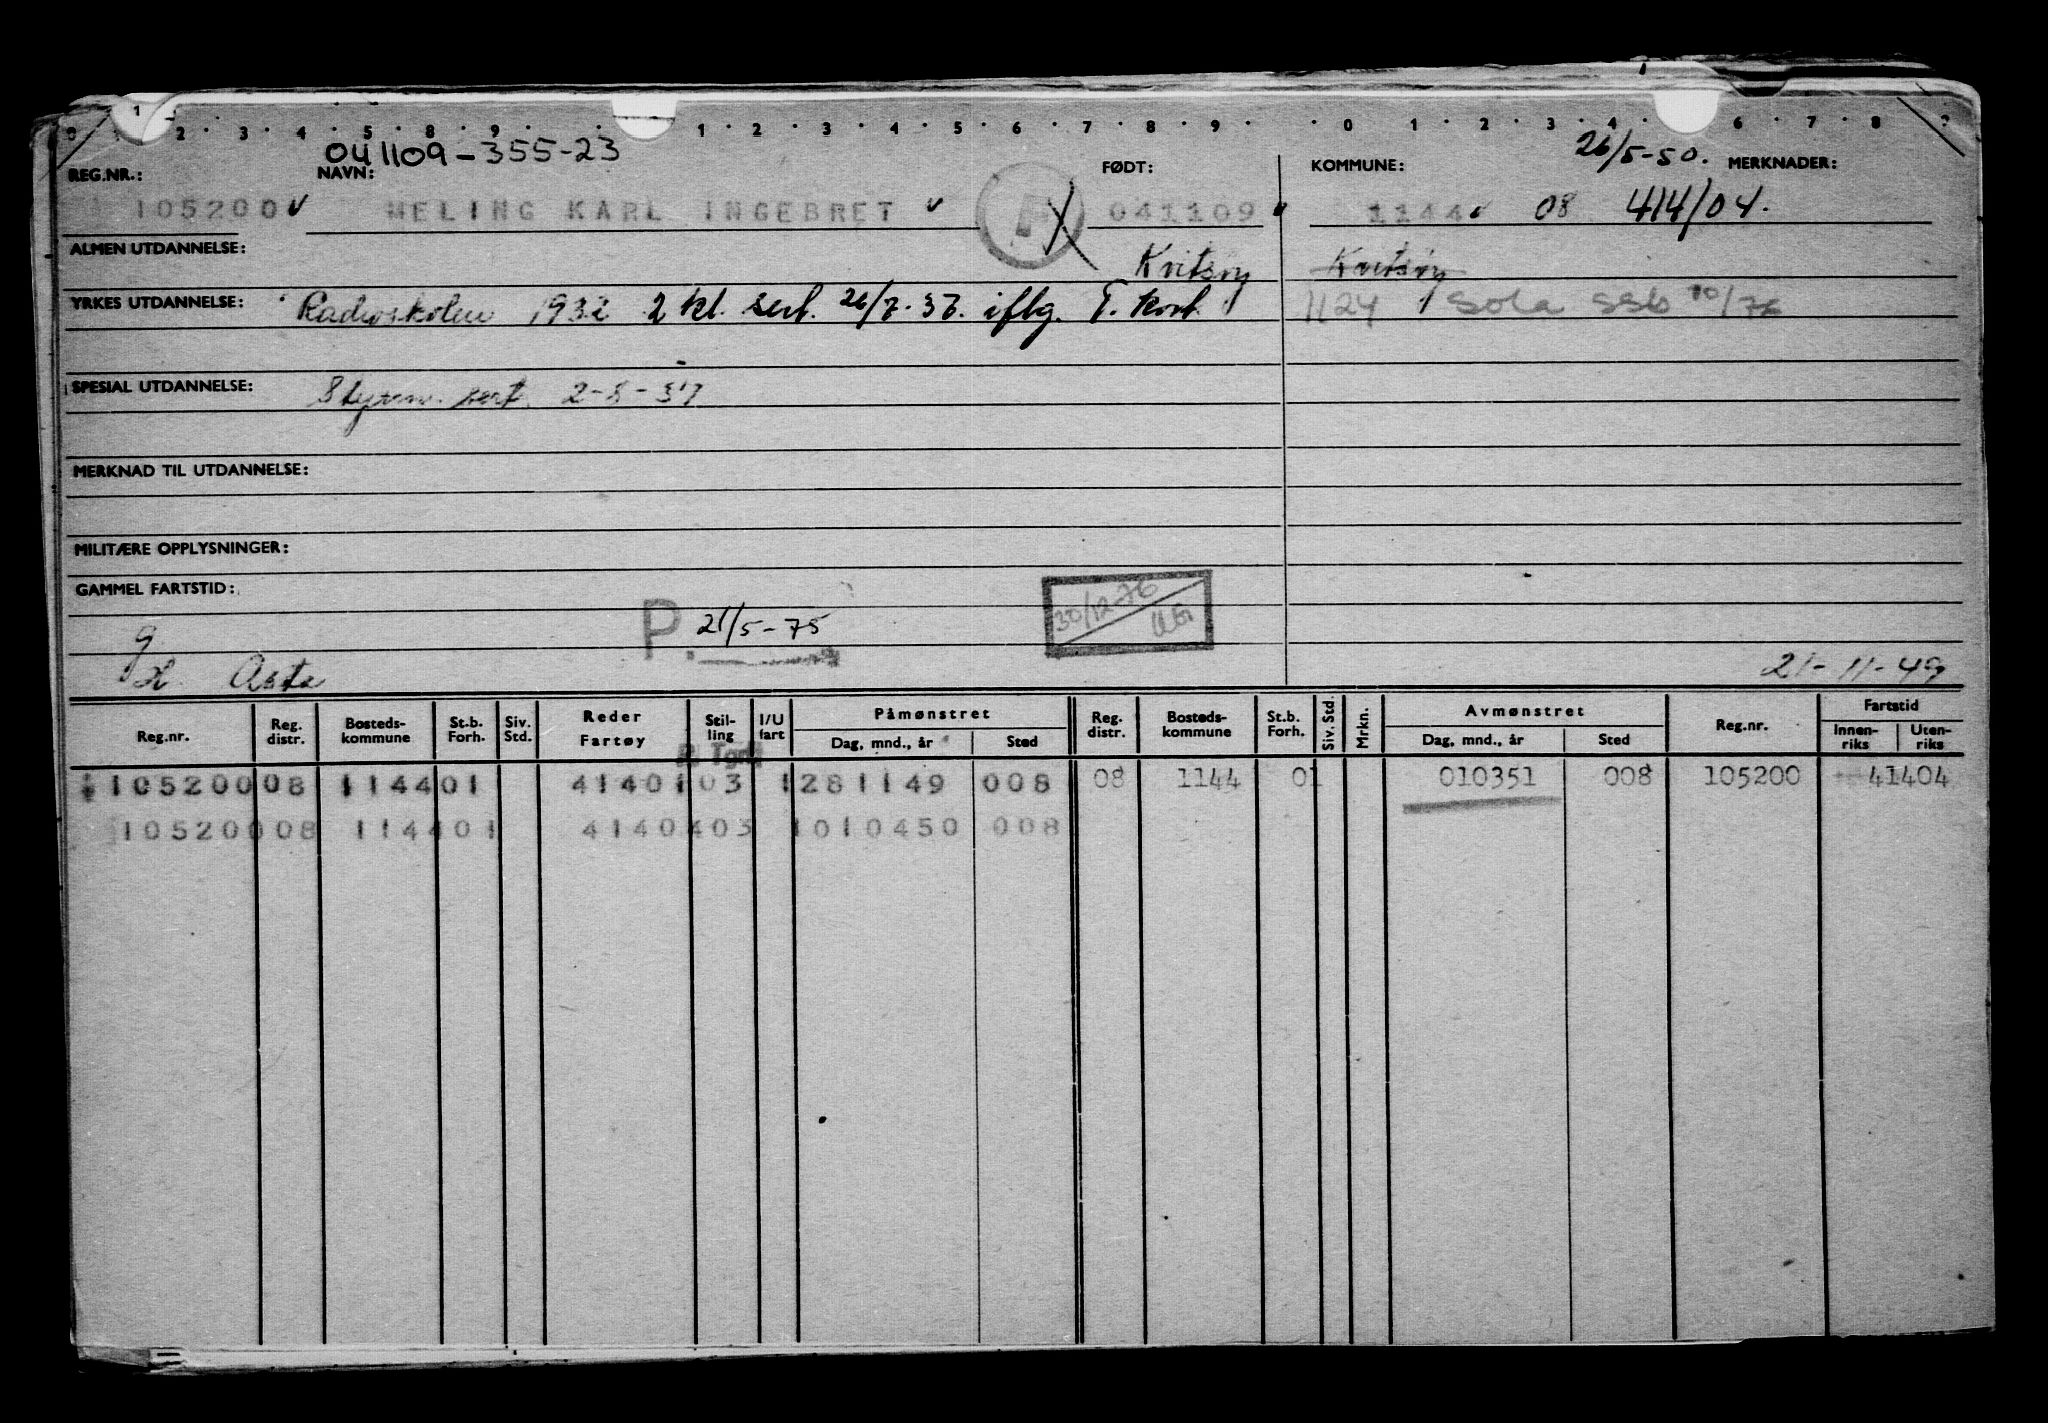 1
0 1 2 3 4 5 8 9 1 2 3 4 5 6 7 8 9 0 1 2 3 4 6 7 8
041109-355-23
26/5-50.
REG.NR.: NAVN: FØDT: KOMMUNE: MERKNADER:
105200 MELING KARL INGEBRET 041109 1144 08 414/04.
ALMEN UTDANNELSE: Kvitsøy Kvitsøy
YRKES UTDANNELSE: Radioskolen 1932 2 kl. sert. 26/7-37. iflg. T. kort. 1124 Sola SSB 10/76
SPESIAL UTDANNELSE: Styrm. sert. 2-8-37
MERKNAD TIL UTDANNELSE:
MILITÆRE OPPLYSNINGER:
GAMMEL FARTSTID:
P. 21/5-75 30/12-76
g
gl. Asta 21-11-49
Reg.nr. Reg. distr. Bosteds-kommune St.b. Forh. Siv. Std. Reder Fartøy Stil-ling I/U fart Påmønstret Dag, mnd., år Sted Reg. distr. Bosteds-kommune St.b. Forh. Siv. Std. Mrkn. Avmønstret Dag, mnd., år Sted Reg.nr. Fartstid Innen-riks Uten-riks
R. Tgrf
105200 08 1144 01 41401 03 1 281149 008 08 1144 01 010351 008 105200 41404
105200 08 1144 01 41404 03 1 010450 008